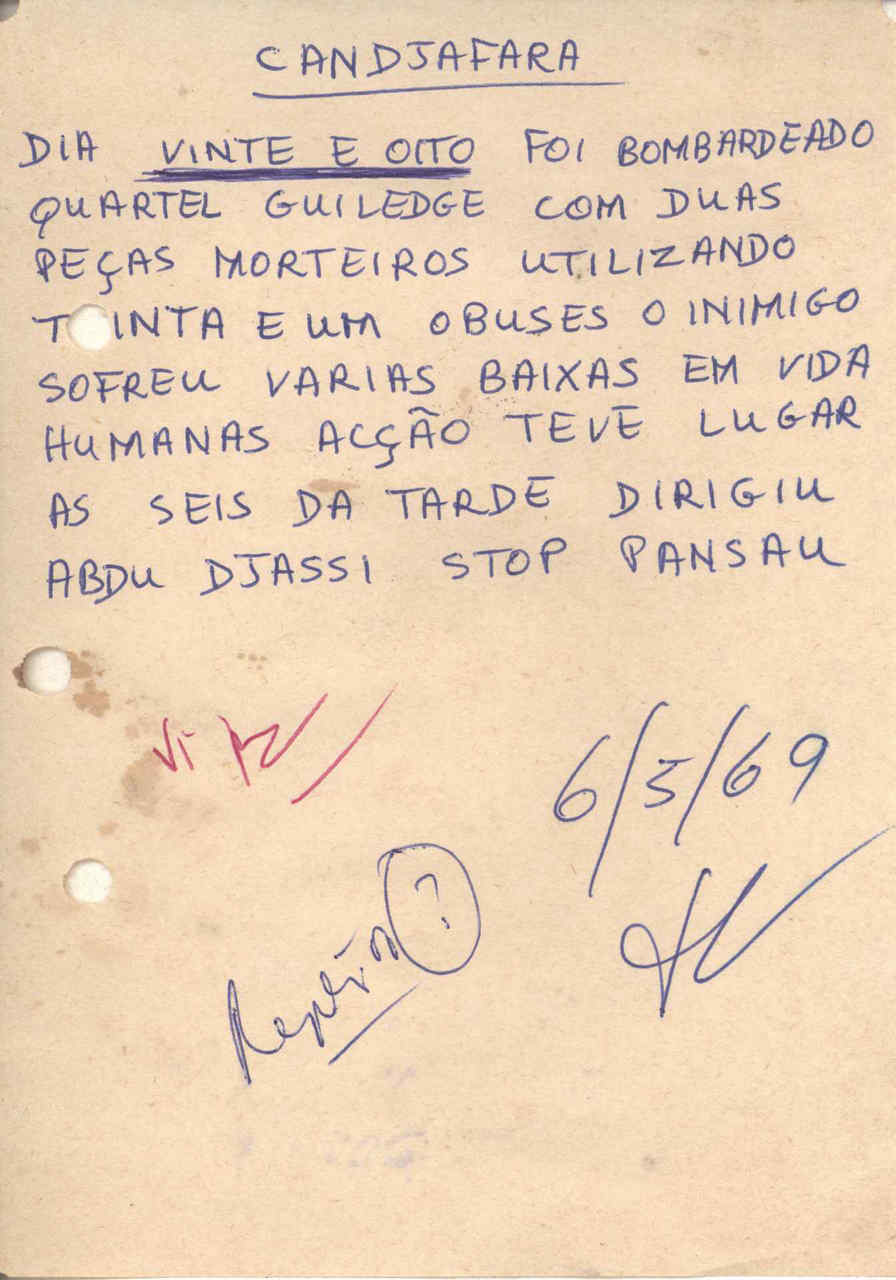 CANDJAFARA
DIA VINTE E OITO FOI BOMBARDEADO
QUARTEL GUILEDGE COM DUAS
PEÇAS MORTEIROS UTILIZANDO
T INTA E UM OBUSES O INIMIGO
SOFREU VARIAS BAIXAS EM VIDA
HUMANAS ACÇÃO TEVE LUGAR
AS SEIS DA TARDE DIRIGIU
ABDU DJASSI STOP PANSAU
6/5/69
?